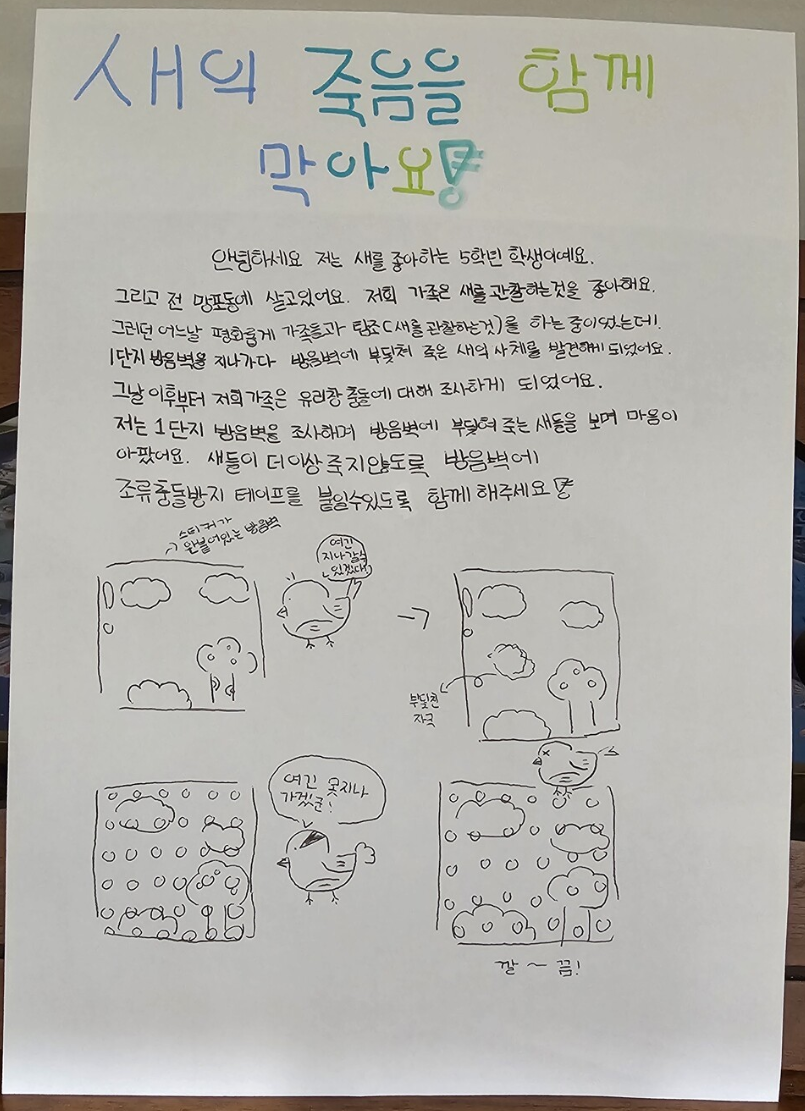 새의 죽음을 함께
막아요!
안녕하세요 저는 새를 좋아하는 5학년 학생이예요.
그리고 전 망포동에 살고있어요. 저희 가족은 새를 관찰하는것을 좋아해요.
그러던 어느날 평화롭게 가족들과 탐조(새를 관찰하는것)를 하는 중이었는데!
1단지 방음벽을 지나가다 방음벽에 부딪쳐 죽은 새의 사체를 발견하게 되었어요.
그날 이후부터 저희 가족은 유리창 충돌에 대해 조사하게 되었어요.
저는 1단지 방음벽을 조사하며 방음벽에 부딪혀 죽는 새들을 보며 마음이
아팠어요. 새들이 더이상 죽지않도록 방음벽에
조류충돌방지 테이프를 붙일수있도록 함께 해주세요!
스티커가
안붙어있는 방음벽
여긴
지나갈수
있겠다!
부딪친
자국
여긴 못지나
가겠군!
깔~끔!